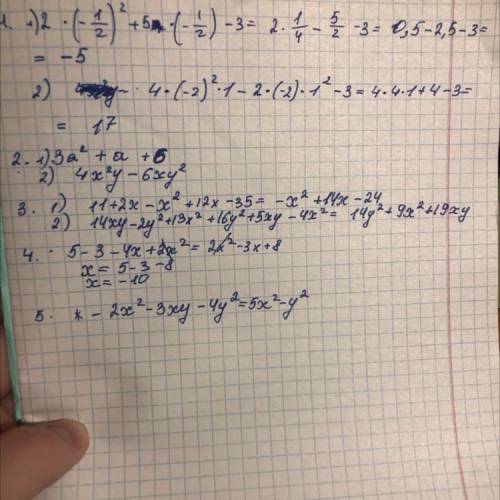 1. 1) 2 · (-1/2)² + 5 · (-1/2) - 3 = 2 · 1/4 - 5/2 - 3 = 0,5 - 2,5 - 3 =
= -5
2) 4 · (-2)² · 1 - 2 · (-2) · 1² - 3 = 4 · 4 · 1 + 4 - 3 =
= 17
2. 1) 3a² + a + 6
2) 4x²y - 6xy²
3. 1) 11 + 2x - x² + 12x - 35 = -x² + 14x - 24
2) 14xy - 2y² + 13x² + 16y² + 5xy - 4x² = 14y² + 9x² + 19xy
4. 5 - 3 - 4x + 2x² = 2x² - 3x + 8
x = 5 - 3 - 8
x = -10
5. * - 2x² - 3xy - 4y² = 5x² - y²